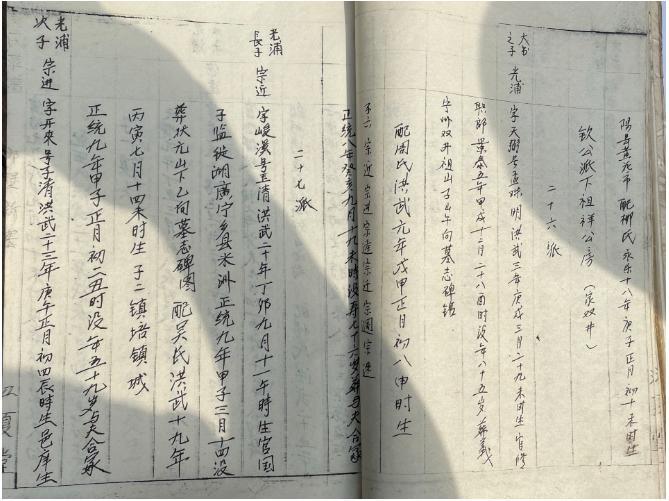 陽号黄龙市 配柳氏 永乐十八年庚子正月初十未时生
钦公派下祖祥公房（家双井）
二十六派
大书之子 光浦 字天 明洪武三年庚戌三月二十九未时生 官修
职郎 景泰五年甲戌十二月二十八酉时没 年八十五岁 葬义
宁州双井祖山子山午向墓志碑
配周氏洪武元年戊甲正月初八申时生
子六 宗近 宗进 宗道 宗迁 宗通 宗
正统八年癸亥九月十九未时没 寿七十六岁 葬与夫合冢
二十七派
光浦长子 宗近 字峻溪 号玉清 洪武二十年丁卯九月十一午时生 官国
子监 湖广宁乡县米洲 正统九年甲子三月十四没
葬状元山下乙向墓志碑图 配吴氏洪武十九年
丙寅七月十四未时生 子二 镇培 镇城
正统九年甲子正月初二丑时没 年五十九岁 与夫合冢
光浦次子 宗进 字开来 号子清 洪武二十三年庚午正月初四辰时生 邑庠生